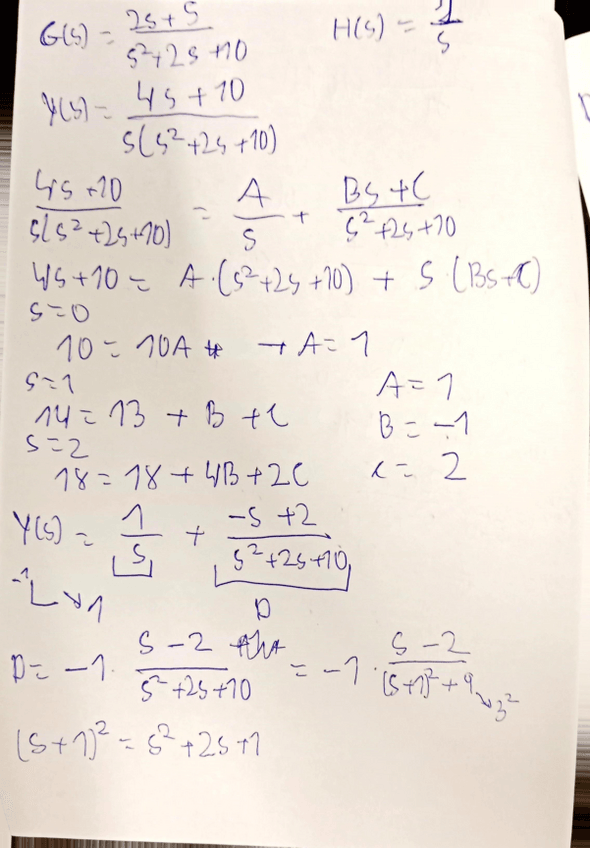 G(s) = (2s+5)/(s²+2s+10) H(s) = 2/s
Y(s) = (4s+10)/(s(s²+2s+10))
(4s+10)/(s(s²+2s+10)) = A/s + (Bs+C)/(s²+2s+10)
4s+10 = A·(s²+2s+10) + s(Bs+C)
s=0
10 = 10A → A=1
s=1 A=1
14 = 13 + B + C B = -1
s=2
18 = 18 + 4B + 2C c = 2
Y(s) = 1/s + (-s+2)/(s²+2s+10)
-1
L ↘ 1 D
D = -1 · (s-2)/(s²+2s+10) = -1 · (s-2)/((s+1)²+9) ↘ 3²
(s+1)² = s²+2s+1